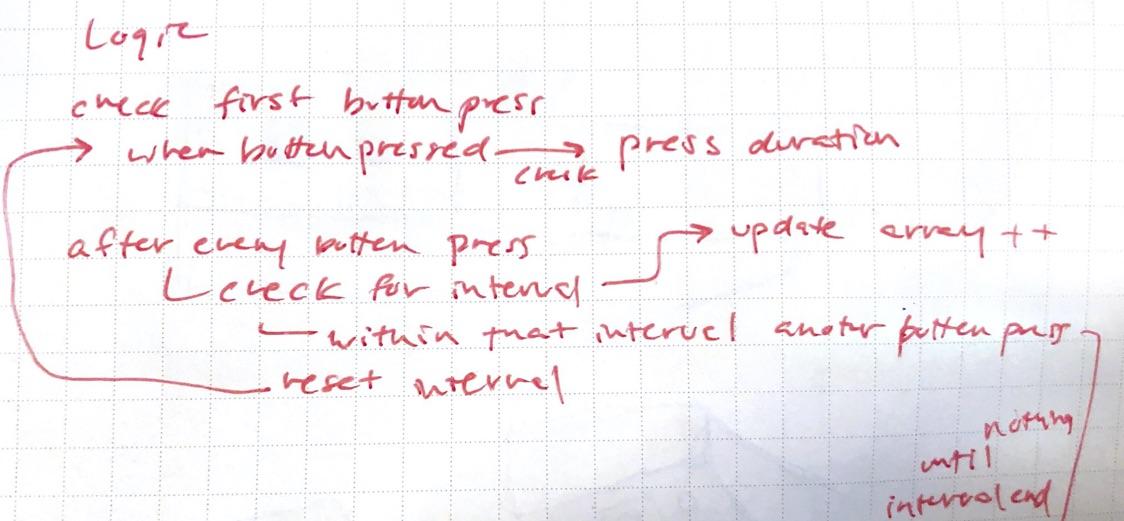 Logic
check first button press
when button pressed → press duration
check
after every button press → update array ++
check for interval
within that interval another button press
reset interval
nothing
until
interval end